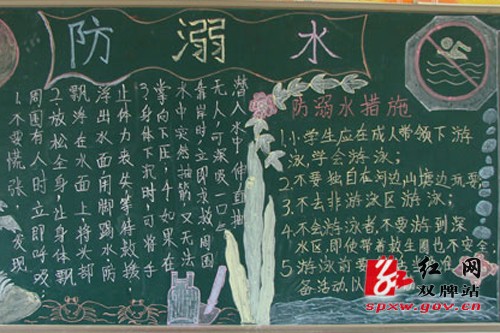 防溺水
1.不要慌张,发现
周围有人时立即呼唤
2.放松全身,让身体飘
飘浮在水面上将头部
浮出水面用脚踢水防
止体力丧失等待救援
3.身体下沉时,可将手
掌向下压,4.如果在
水中突然抽筋又无法
靠岸时,立即求救,周围
无人,可深吸一口
潜入水中伸直抽
防溺水措施
1.小学生应在成人带领下游
泳,学会游泳;
2.不要独自在河边山塘边玩耍;
3.不去非游泳区游泳;
4.不会游泳者,不要游到深
水区,即使带着救生圈也不安全
5游泳前要
备活动,以
红网
双牌站
spxw.gov.cn